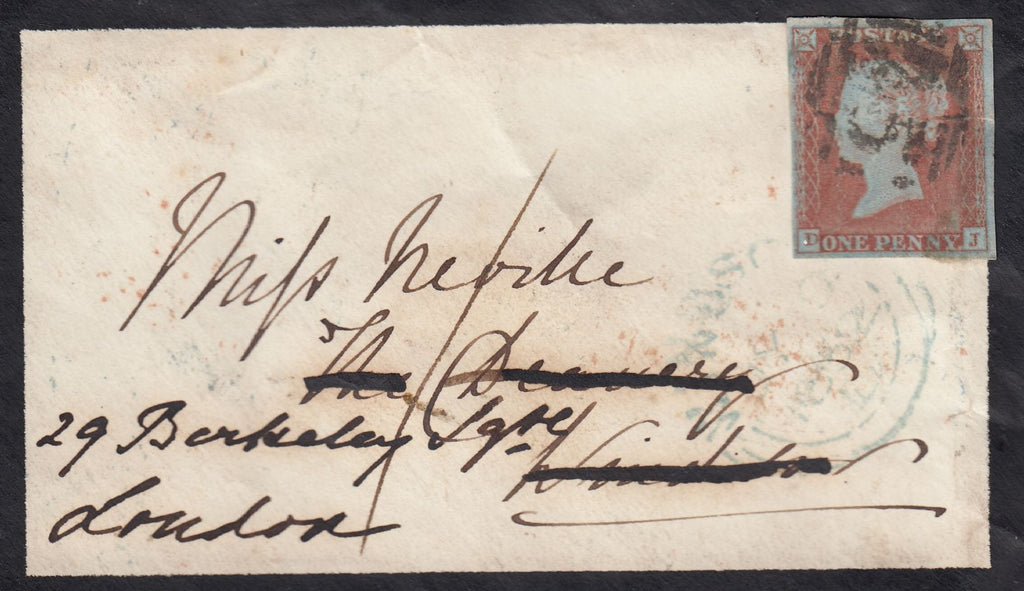 POSTAGE
D ONE PENNY J
Miss Neville
The Deanery
29 Berkeley Sqre
Windsor
London